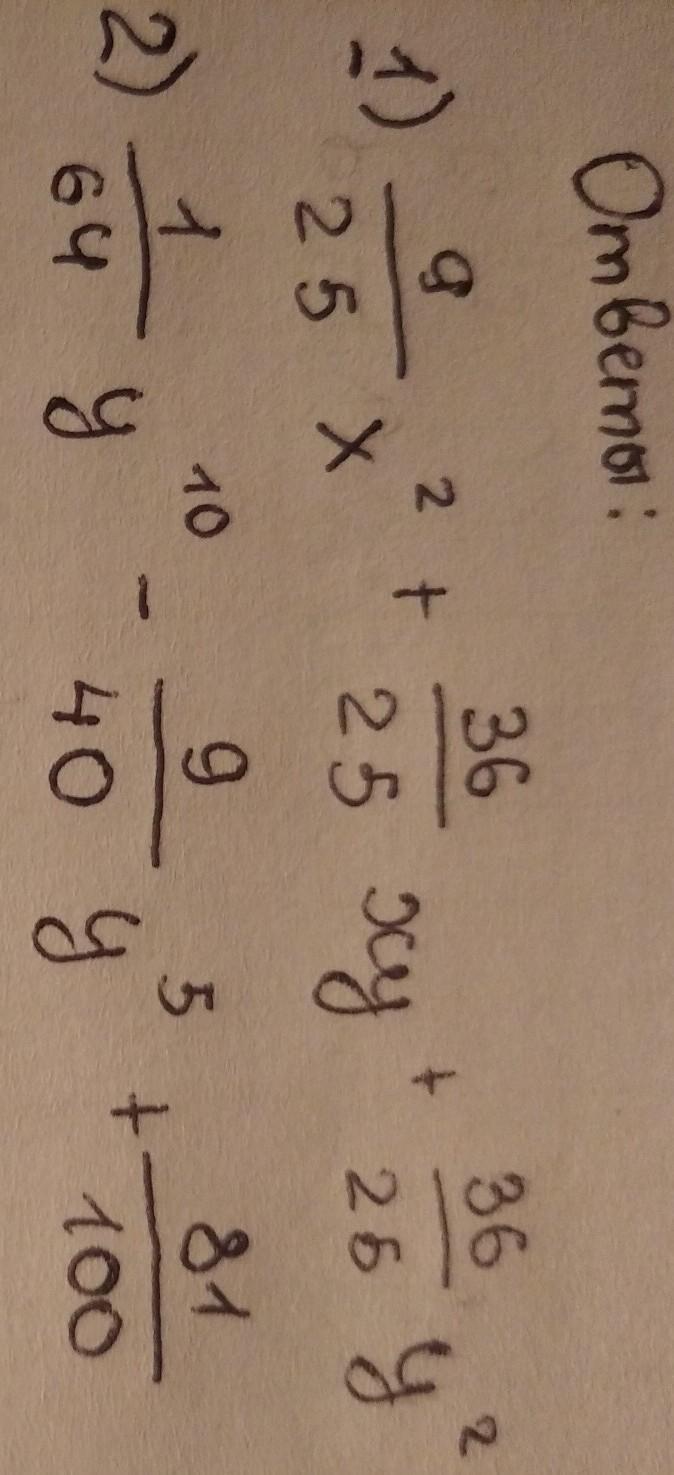 Ответы:
1) 9/25 x² + 36/25 xy + 36/25 y²
2) 1/64 y¹⁰ - 9/40 y⁵ + 81/100